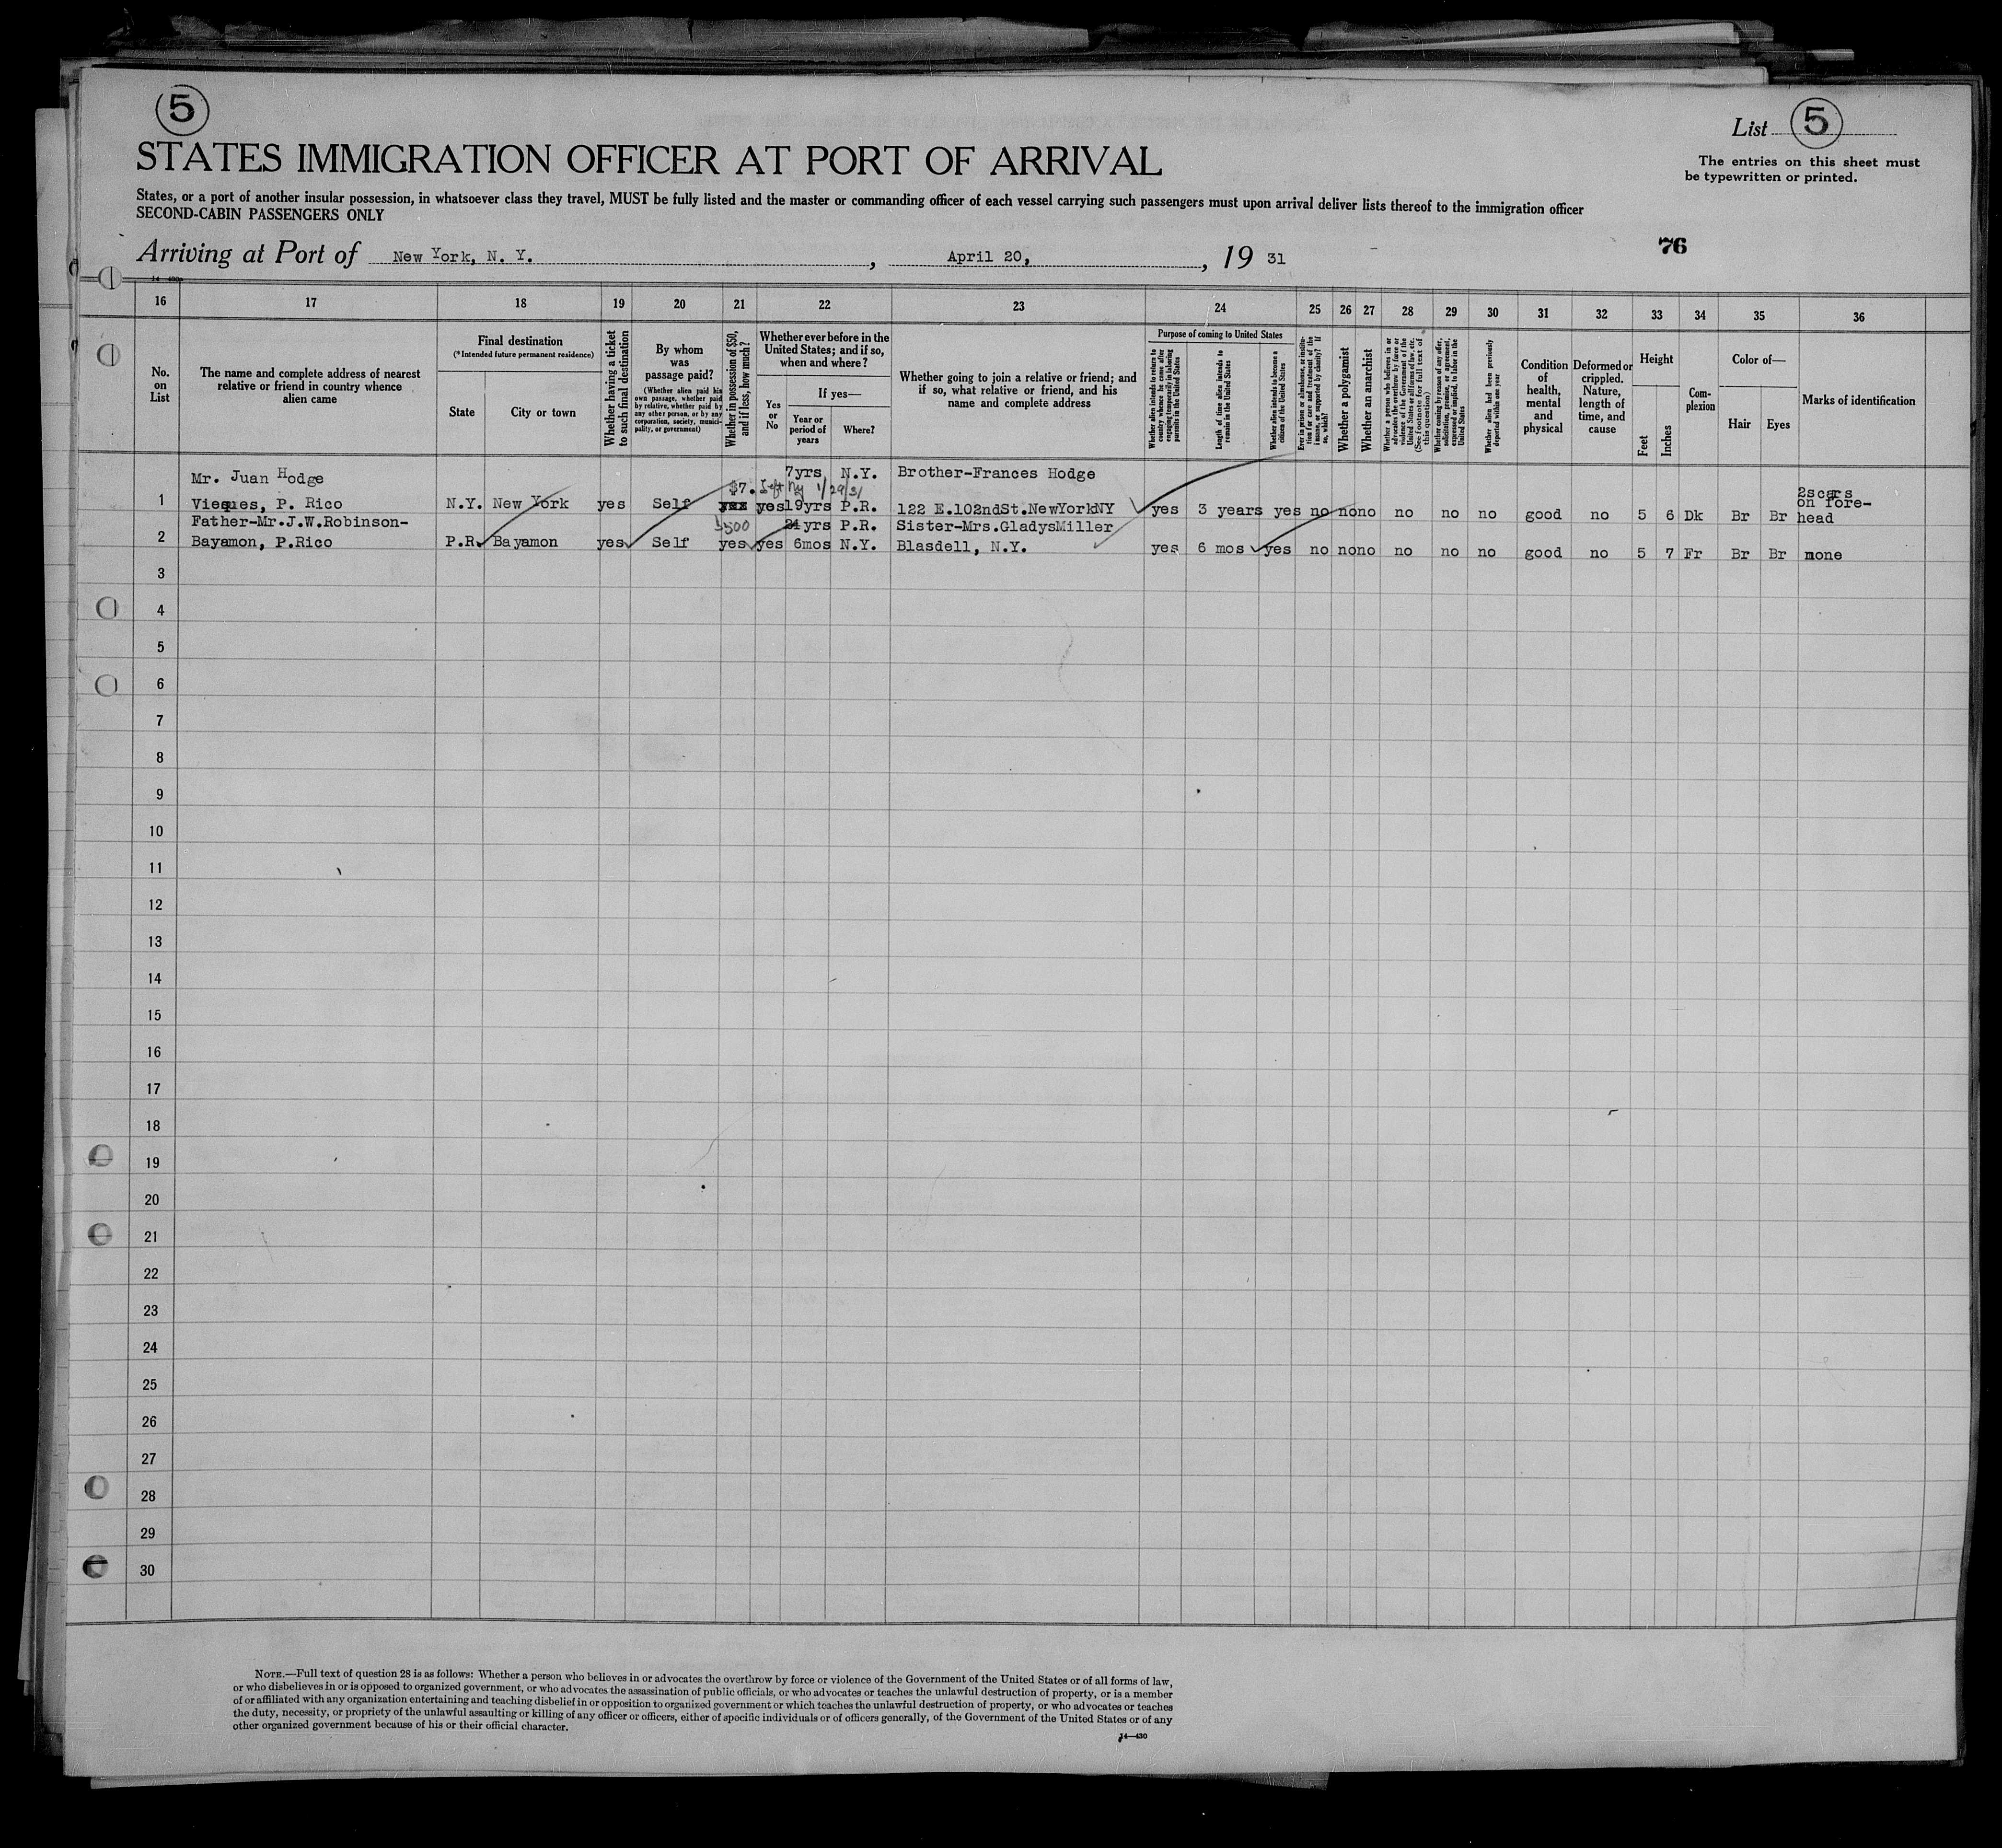 5
List 5
STATES IMMIGRATION OFFICER AT PORT OF ARRIVAL
The entries on this sheet must
be typewritten or printed.
States, or a port of another insular possession, in whatsoever class they travel, MUST be fully listed and the master or commanding officer of each vessel carrying such passengers must upon arrival deliver lists thereof to the immigration officer
SECOND-CABIN PASSENGERS ONLY
Arriving at Port of New York, N. Y. , April 20, , 19 31
76
16 17 18 19 20 21 22 23 24 25 26 27 28 29 30 31 32 33 34 35 36
No.
on
List
The name and complete address of nearest
relative or friend in country whence
alien came
Final destination
(*Intended future permanent residence)
State
City or town
Whether having a ticket
to such final destination
By whom
was
passage paid?
(Whether alien paid his
own passage, whether paid
by relative, whether paid by
any other person, or by any
corporation, society, munici-
pality, or government)
Whether in possession of $50,
and if less, how much?
Whether ever before in the
United States; and if so,
when and where?
Yes
or
No
If yes—
Year or
period of
years
Where?
Whether going to join a relative or friend; and
if so, what relative or friend, and his
name and complete address
Purpose of coming to United States
Whether alien intends to return to
country whence he came after
engaging temporarily in laboring
pursuits in the United States
Length of time alien intends to
remain in the United States
Whether alien intends to become a
citizen of the United States
Ever in prison or almshouse, or institu-
tion for care and treatment of the
insane, or supported by charity? If
so, which?
Whether a polygamist
Whether an anarchist
Whether a person who believes in or
advocates the overthrow by force or
violence of the Government of the
United States or all forms of law, etc.
(See footnote for full text of
this question)
Whether coming by reason of any offer,
solicitation, promise, or agreement,
expressed or implied, to labor in the
United States
Whether alien had been previously
deported within one year
Condition
of
health,
mental
and
physical
Deformed or
crippled.
Nature,
length of
time, and
cause
Height
Feet
Inches
Com-
plexion
Color of—
Hair
Eyes
Marks of identification
Mr. Juan Hodge 7yrs N.Y. Brother-Frances Hodge
$7. Left Ny 1/29/31 2scars
1 Vieques, P. Rico N.Y. New York yes Self yes yes 19yrs P.R. 122 E.102ndSt.NewYorkNY yes 3 years yes no no no no no no good no 5 6 Dk Br Br on fore-
head
Father-Mr.J.W.Robinson- $500 21yrs P.R. Sister-Mrs.GladysMiller
2 Bayamon, P.Rico P.R. Bayamon yes Self yes yes 6mos N.Y. Blasdell, N.Y. yes 6 mos yes no no no no no no good no 5 7 Fr Br Br none
3
4
5
6
7
8
9
10
11
12
13
14
15
16
17
18
19
20
21
22
23
24
25
26
27
28
29
30
NOTE.—Full text of question 28 is as follows: Whether a person who believes in or advocates the overthrow by force or violence of the Government of the United States or of all forms of law,
or who disbelieves in or is opposed to organized government, or who advocates the assassination of public officials, or who advocates or teaches the unlawful destruction of property, or is a member
of or affiliated with any organization entertaining and teaching disbelief in or opposition to organized government or which teaches the unlawful destruction of property, or who advocates or teaches
the duty, necessity, or propriety of the unlawful assaulting or killing of any officer or officers, either of specific individuals or of officers generally, of the Government of the United States or of any
other organized government because of his or their official character.
14—430